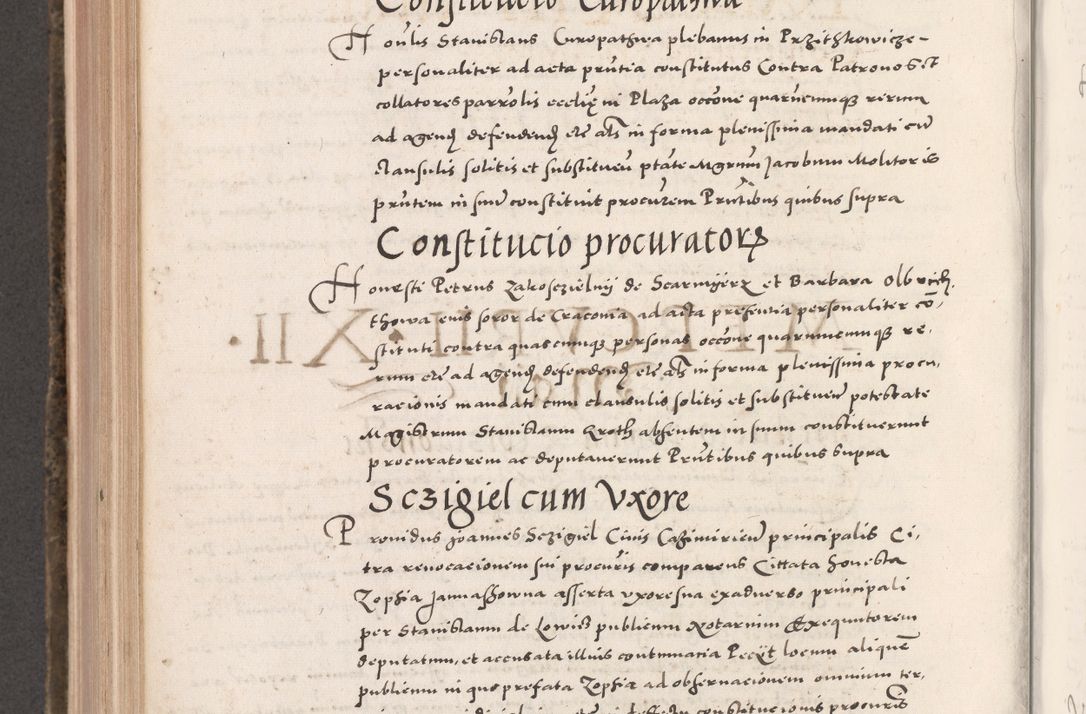 Constitucio Curopathwa
Honılis Stanislaus Curopathwa plebanus in Przithkowicze -
personaliter ad acta pñtia constitutus Contra Patronos &
collatores parrolis ecclię in Plaza occõne quarũcumqꝫ rerum
ad agend defendend etc als in forma plenissima mandati cũ
clausulis solitis et substituen ptate Mgrum Jacobum Molitoris
pñtem in sinũ constituit procurem Pñtibus quibus supra
Constitucio procuratorꝫ
Honesti Petrus Zakosczielnij de et Barbara Olbrich,
thowa eius soror de Cracouia ad acta presentia personaliter cõ,
stituti contra quascumqꝫ personas occõne quarumcumqꝫ re,
rum etc ad agend defendend etc als in forma plenissima procu,
racionis mandati cum clausulis solitis et substituen potestate
Magistrum Stanislaum Kroth absentem in suum constituerunt
procuratorem ac deputauerunt Pñtibus quibus supra
Sczigiel cum Vxore
Prouidus Joannes Sczigiel Ciuis Cazimirien principalis Ci,
tra reuocacionem sui procuris comparens Cittata honesta
Zophia Jannashowna asserta vxore sua ex aduerso principali
per Stanislaum de Lowicz publicum Notarium Exequutorem
deputatum, et accusata illius contumacia Pecijt locum aliquẽ
publicum in quo prefata Zophia ad obseruacionem omnium ter,
constitucionis procuris